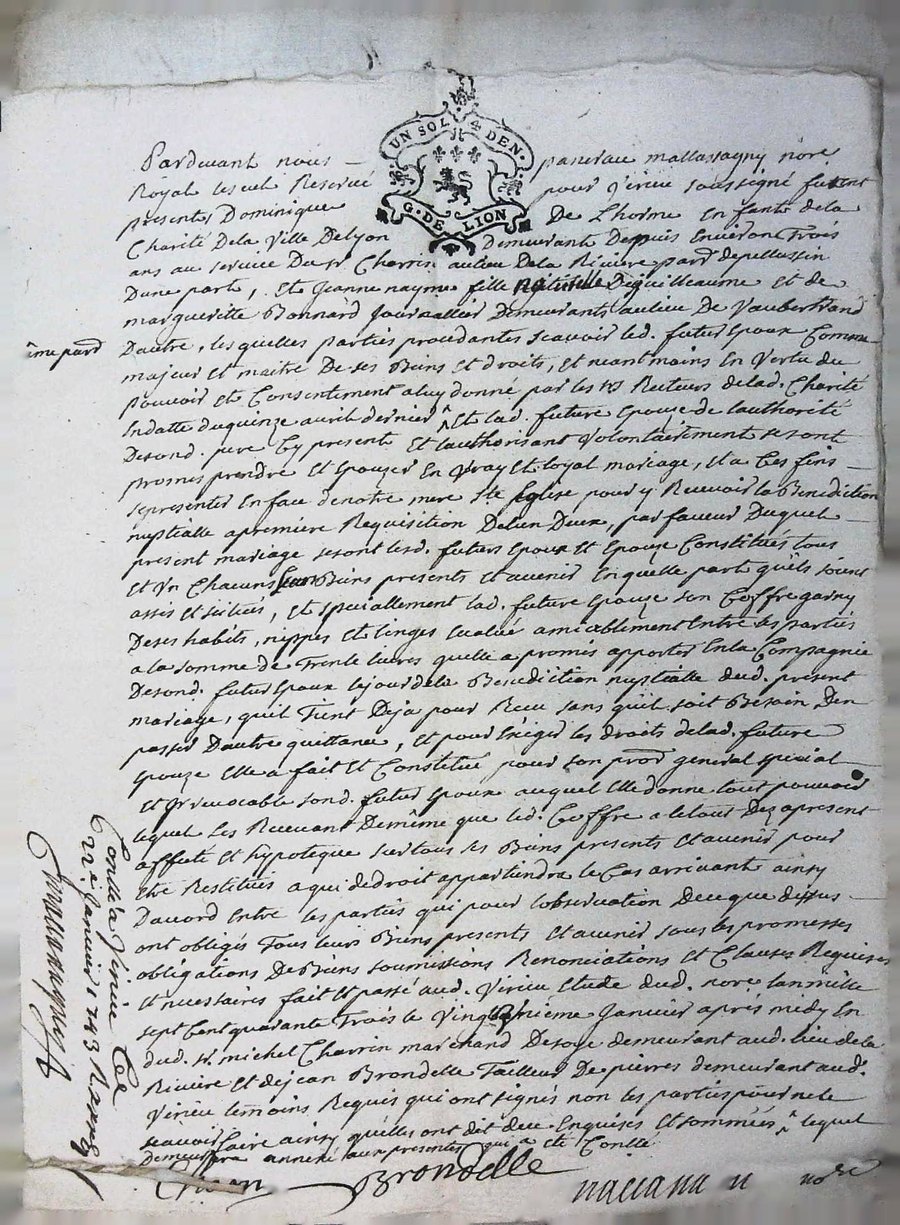 UN SOL 4 DEN.
G. DE LION
Pardevant nous mallassagny nore
Royal les cul Reservé pour Virieu soussigné furent
presents Dominique De Lhorme Enfant de la
Charité De la Ville De Lyon Demeurant Depuis Environ Trois
ans au service Du sr. Charrin au lieu De la Rivière par. de pellussin
Dune part, Et Jeanne nayme fille naturelle De guilleaume et de
margueritte Bonnard Journallier Demeurants au lieu De Vaubertrand
Dautre, les quelles parties procedantes scavoir led. futur Epoux Comme
majeur Et maitre De ses Biens Et droits, Et neantmoins En Vertu du
pouvoir Et Consentement a luy donné par les rs Recteurs de lad. Charité
En datte du quinze avril dernier ^ Et lad. future Epouse de lauthorité
De sond. pere Cy present Et lauthorisant Volontairement se sont
promis prendre Et Epouzer En Vray Et loyal mariage, Et a Ces fins
se presenter En face de notre mere ste Eglise pour y Recevoir la Benediction
nuptialle a premiere Requisition De lun Deux, par faveur Duquel
present mariage se sont lesd. futurs Epoux Et Epouze Constitués tous
Et Un Chacuns leurs Biens presents Et avenir En quelle part quils soient
assis Et scitués, Et speciallement lad. future Epouze son Coffre garny
De ses habits, nippes Et linges Evalué amiablement Entre les parties
a la somme de Trente livres quelle a promis apporter En la Compagnie
De sond. futur Epoux le jour de la Benediction nuptialle dud. present
mariage, quil Tient Deja pour Receu sans quil soit Besoin Den
passer Dautre quittance, Et pour Exiger les droits de lad. future
Epouze Elle a fait Et Constitué pour son pror. general special
Et Irrevocable sond. futur Epoux auquel Elle donne tout pouvoir
lequel les Recevant De même que led. Coffre a le tout Dez a present
affecté Et hypoteque sur tous ses Biens presents Et avenir pour
Etre Restitués a qui de droit appartiendra le Cas arrivant ainsy
Daccord Entre les parties qui pour lobservation De ce que dessus
ont obligés Tous leurs Biens presents Et avenir sous les promesses
obligations De Biens soumissions Renonciations Et Clauses Requises
Et necessaires fait Et passé aud. Virieu Etude dud. nore lan mille
sept Cent quarante Trois le Janvier après midy En
dud. sr. michel Charrin marchand De soye demeurant aud. lieu de la
Rivière Et de jean Brondelle Tailleur De pierres demeurant aud.
Virieu temoins Requis qui ont signés non les parties pour ne le
scavoir faire ainsy quelles ont dit de ce Enquises Et sommées ^ lequel
demeurera annexé aux presentes qui a été Conllé
Brondelle
nore
Conllé a Virieu Le
Janvier 1743 R